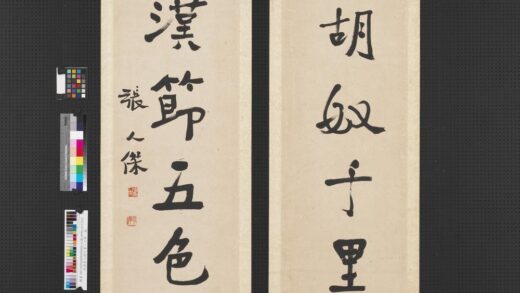 胡奴千里
漢節五色
張人傑